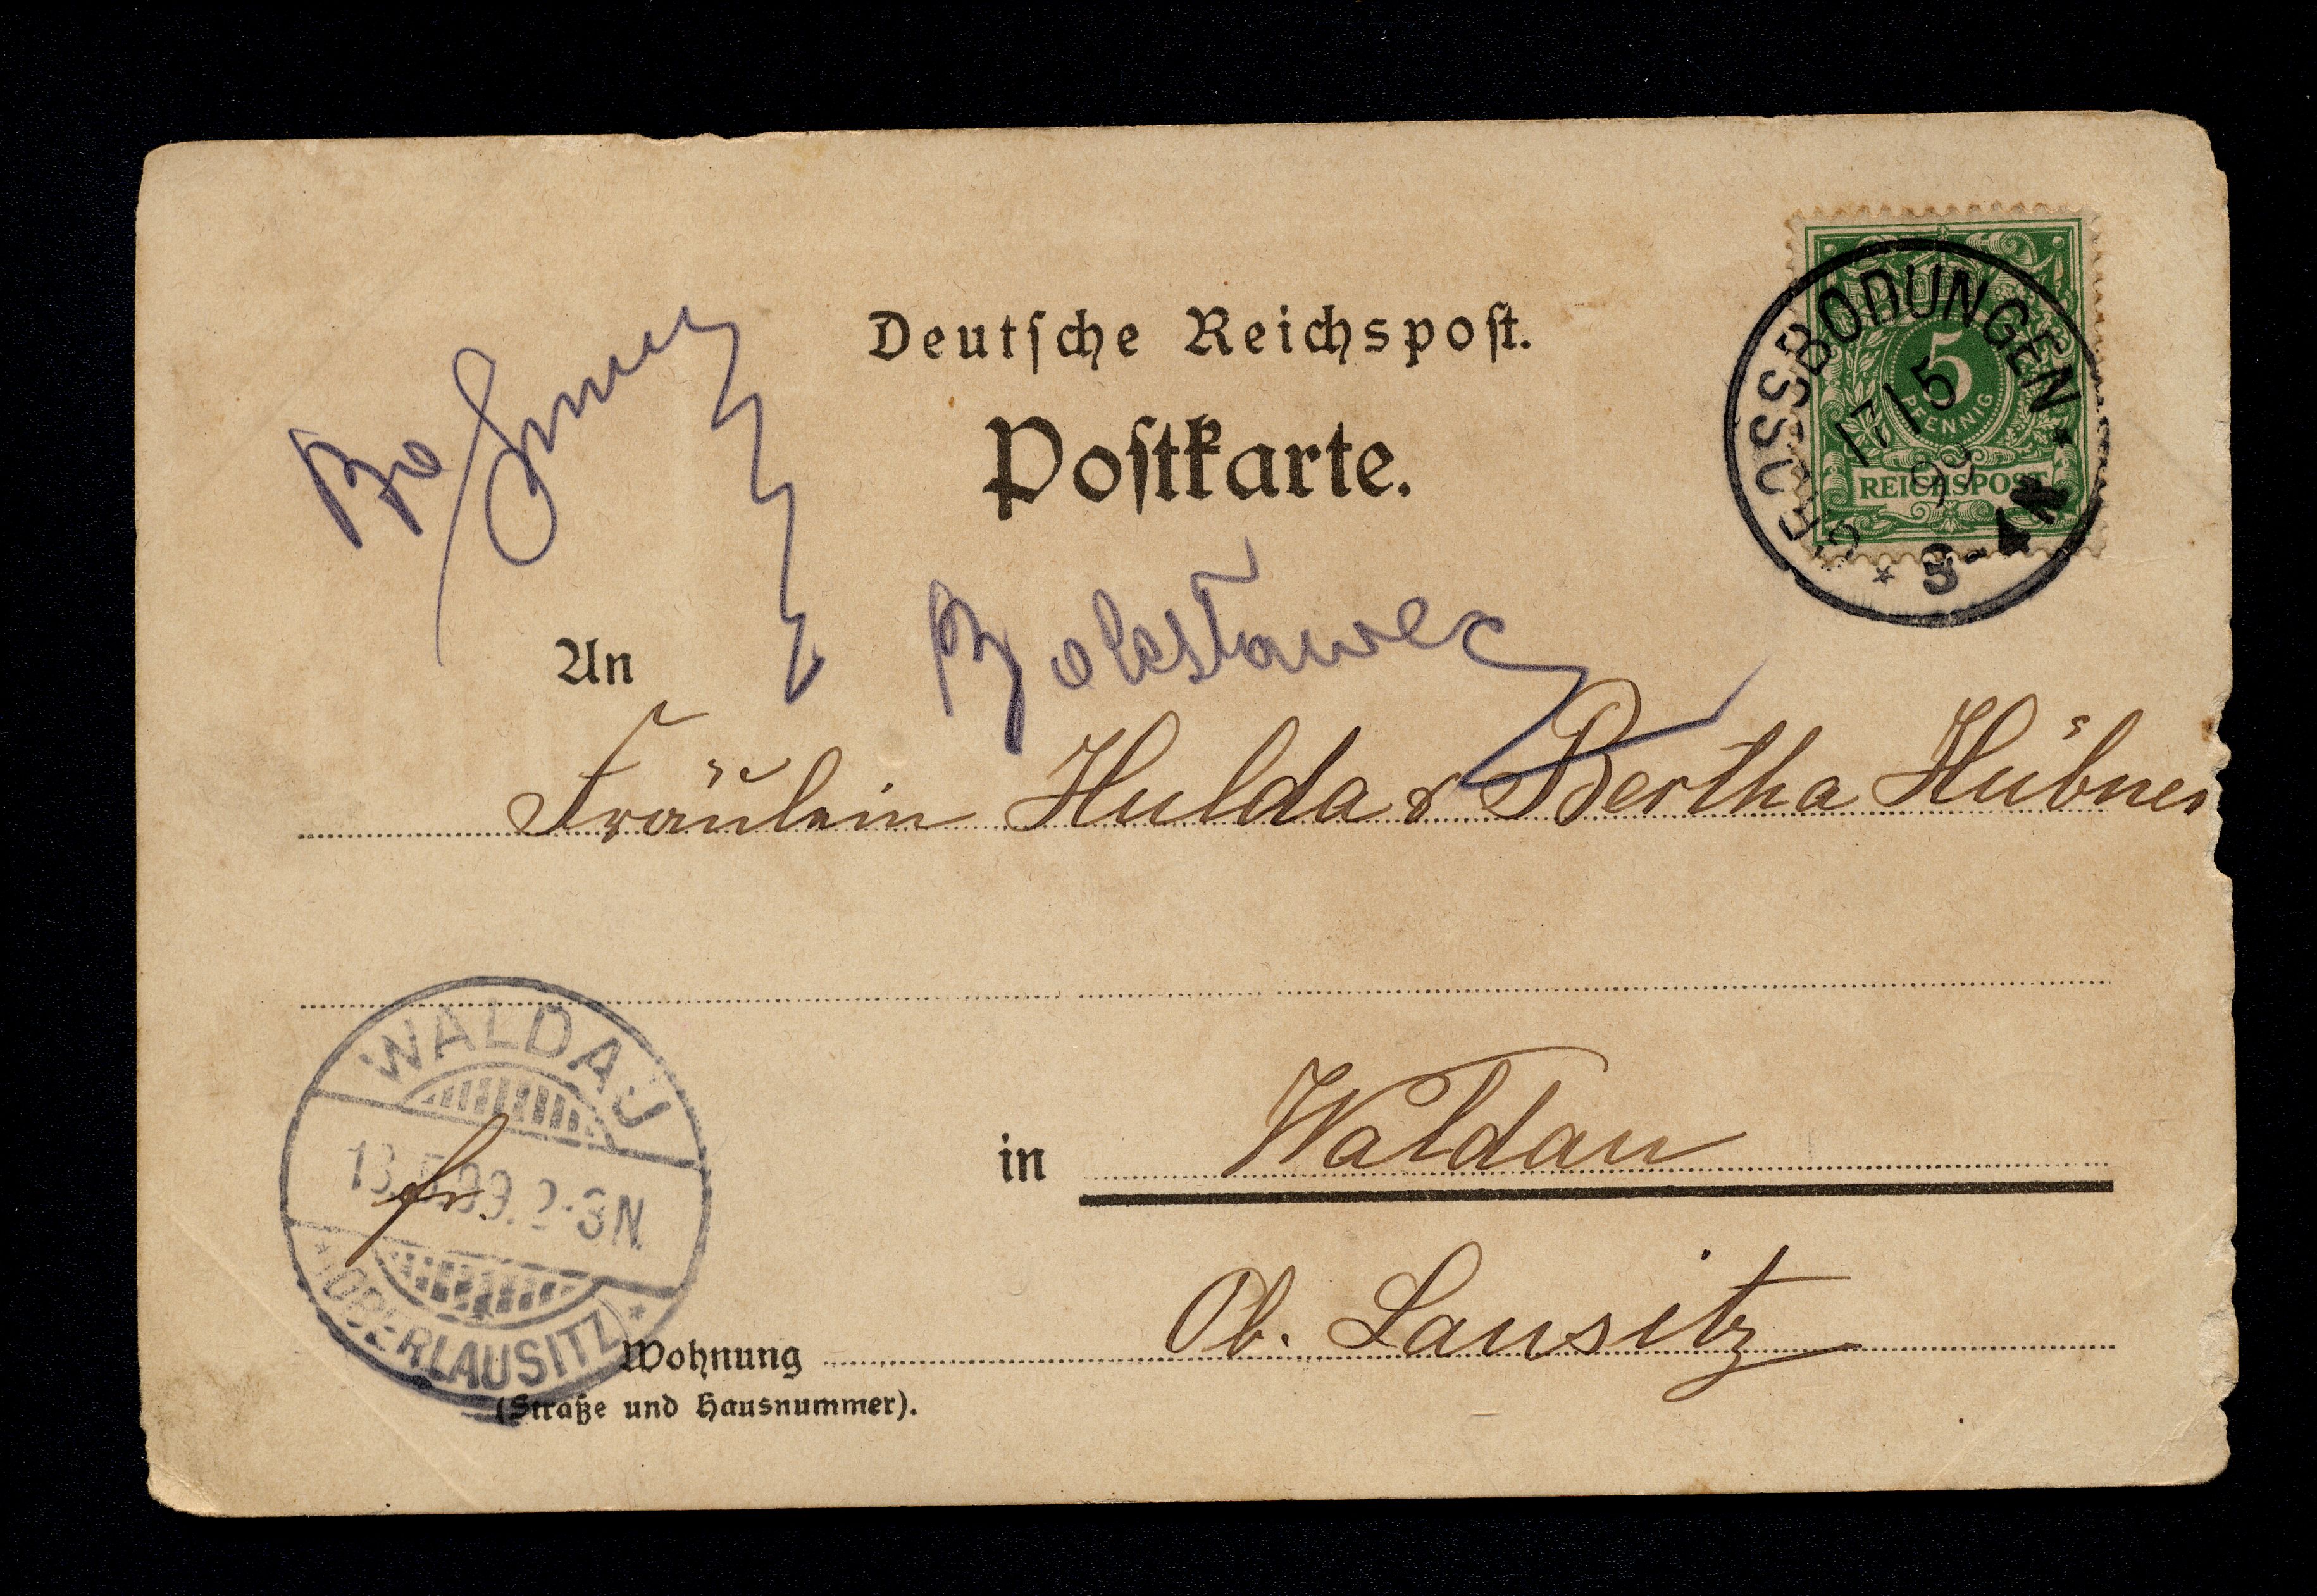 Deutsche Reichspost.
Postkarte.
GROSSBODUNGEN
5
PFENNIG
REICHSPOST
17/5
99
3-4N
Bolesławez
An
Fräulein Hulda & Bertha Hübner
WALDAU
18.5.99.2-3N.
(OBERLAUSITZ)
fr.
in Waldau
Ob. Lausitz
Wohnung
(Straße und Hausnummer).